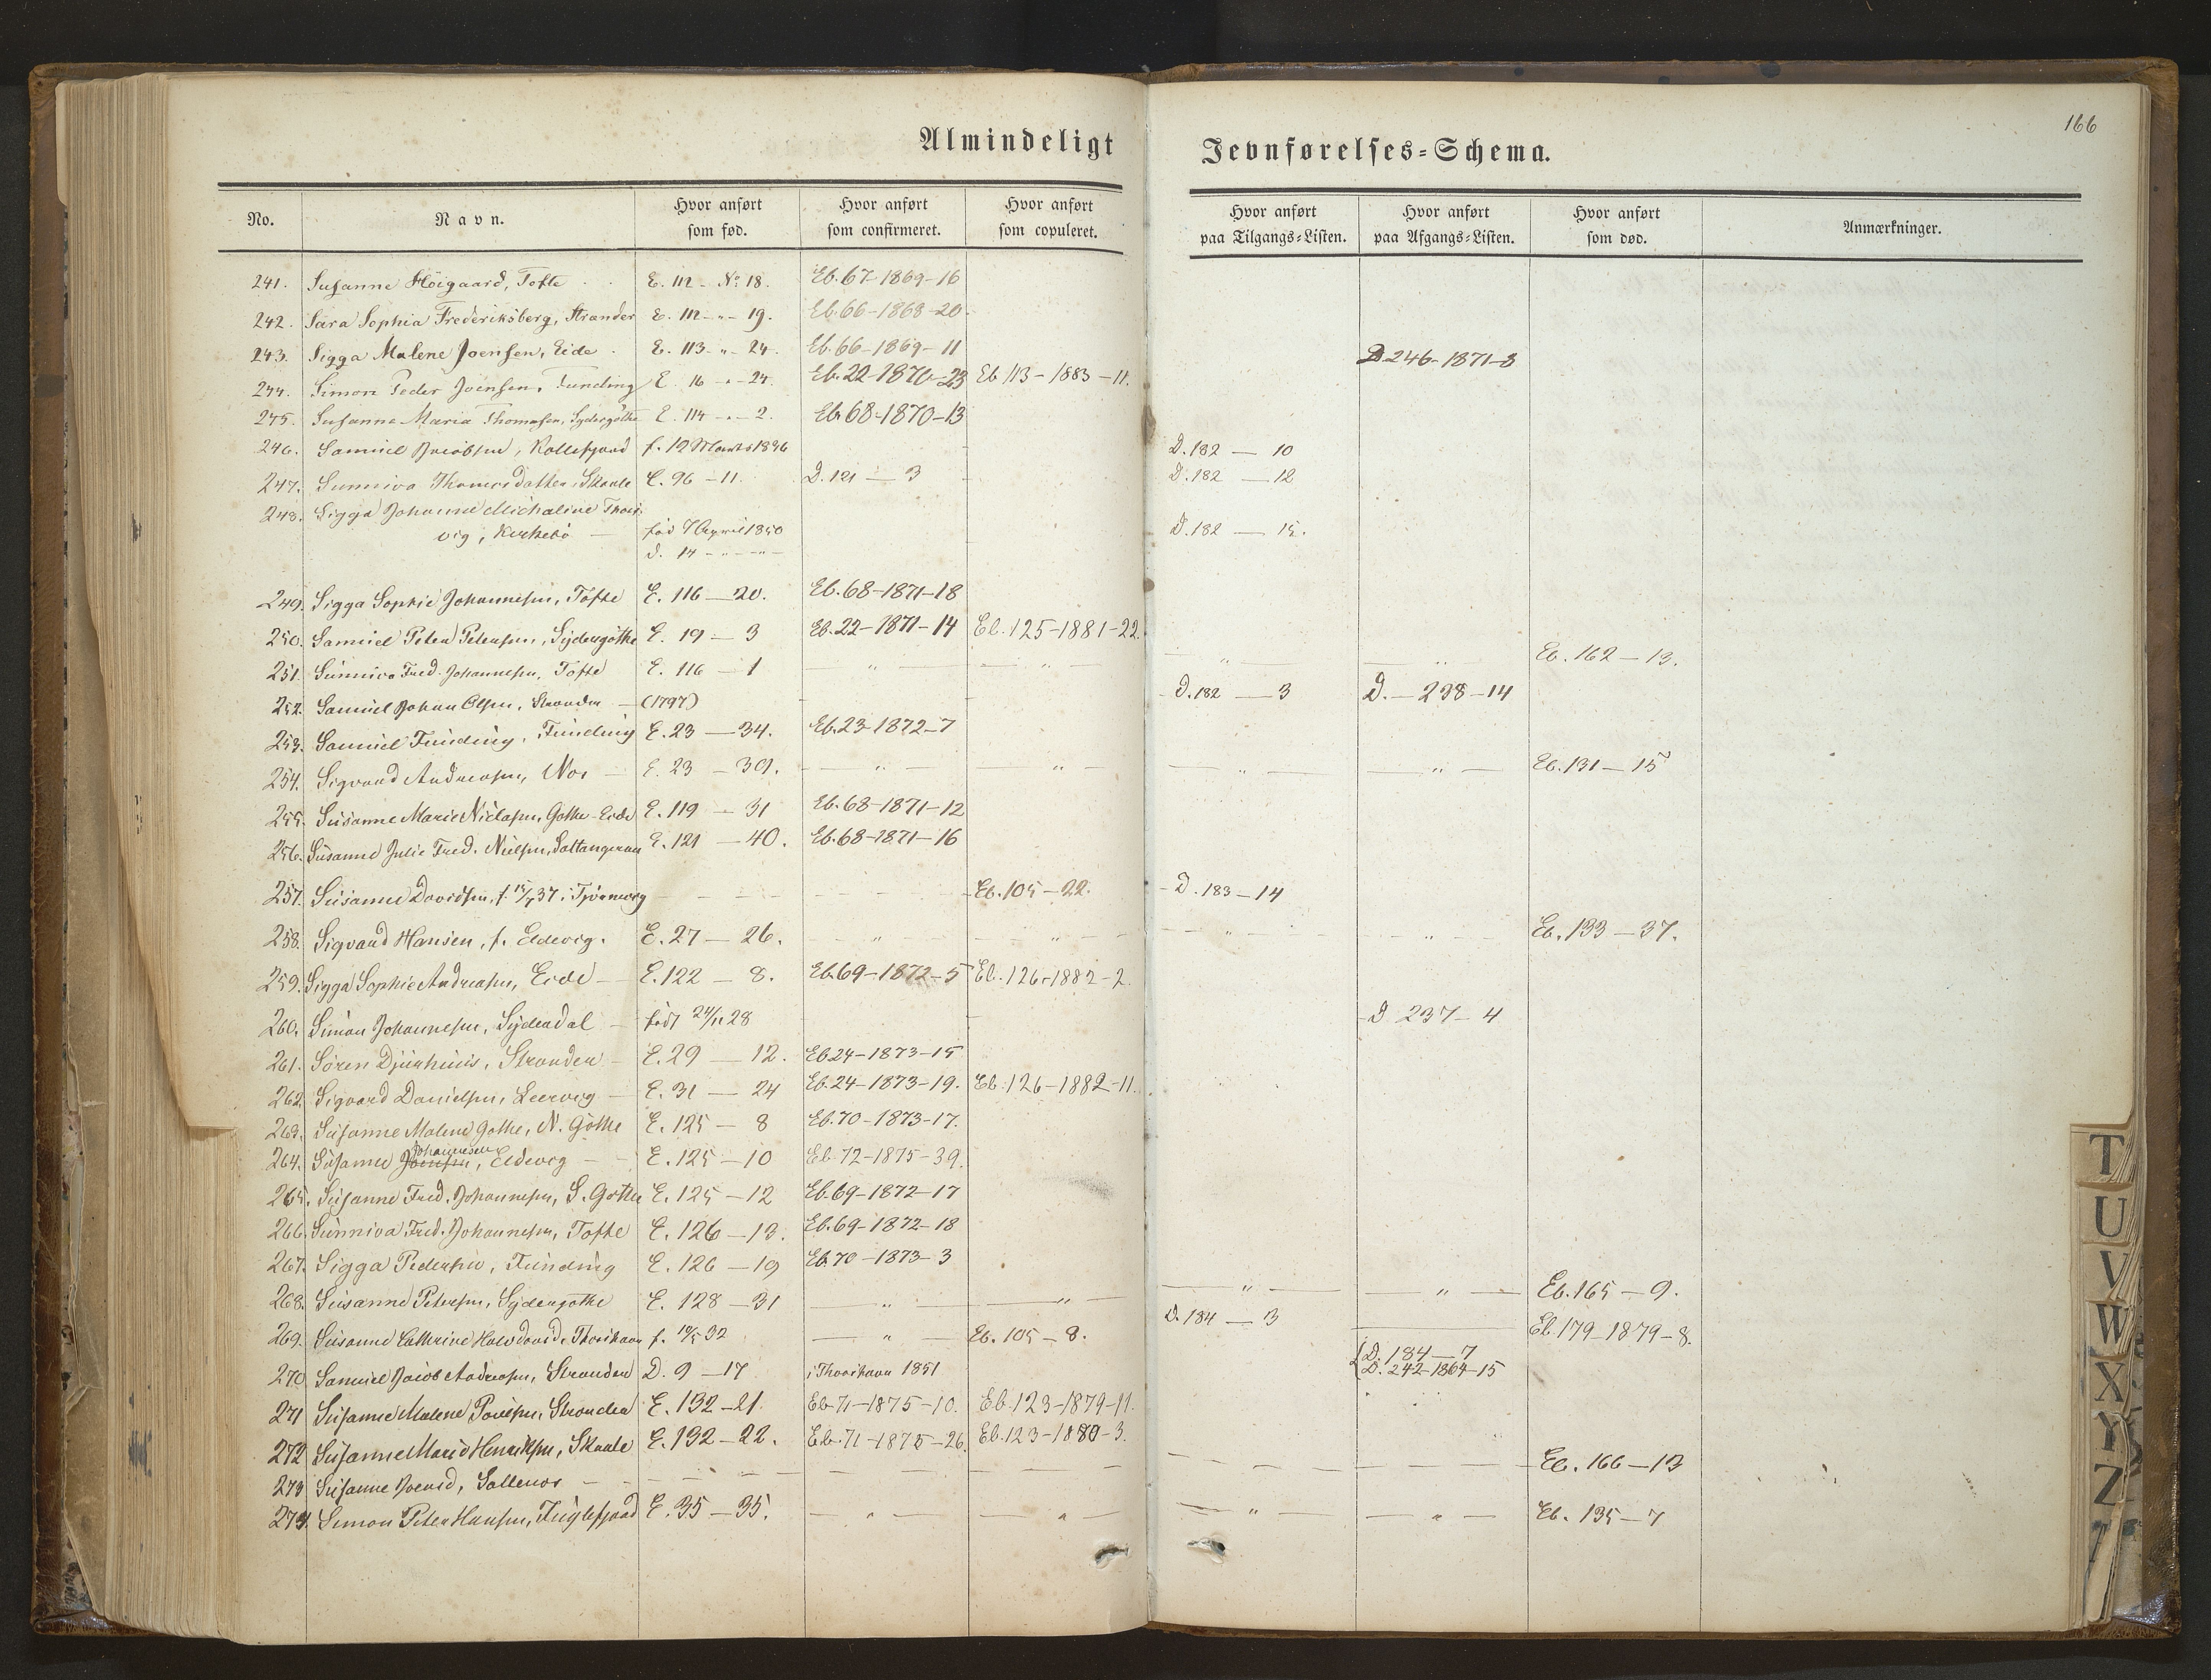 166
Almindeligt Jevnførelses=Schema.
No. | Navn. | Hvor anført som fød. | Hvor anført som confirmeret. | Hvor anført som copuleret. | Hvor anført paa Tilgangs=Listen. | Hvor anført paa Afgangs=Listen. | Hvor anført som død. | Anmærkninger.
241. Susanne Höigaard, Tofte E. 112 - No 18. Eb. 67-1869-16
242. Sara Sophia Frederiksberg, Strander E. 112 - " - 19. Eb. 66-1868-20.
243. Sigga Malene Joensen, Eide E. 113 - " - 24. Eb. 66-1869-11 D 246-1871-3
244. Simon Peder Joensen, Funding E. 16 - " - 24. Eb. 22-1870-23 Eb 113-1883-11.
245. Susanne Maria Thomasen, Sydergöthe E. 114 - " - 2. Eb. 68-1870-13
246. Samuel Jacobsen, Kollefjord f. 12 Marts 1836 D. 182 — 10
247. Sunniva Thomasdatter, Skaale E. 96 - 11. D. 121 — 3 D. 182 — 12
248. Sigga Johanne Michaline Thors-
vig, Kirkebö — fød 7 April 1850 D. 182 — 15.
d. 14 - " - " -
249. Sigga Sophie Johannesen, Tofte E. 116 — 20. Eb. 68-1871-18
250. Samuel Peter Petersen, Sydergöthe E. 19 — 3 Eb. 22-1871-14 Eb. 125-1881-22.
251. Sunniva Fred. Johannesen, Tofte E. 116 — 1 — " — — " — — " — — " — Eb. 162 — 13.
252. Samuel Johan Olsen, Strander — (1797) D. 182 — 3 D. — 238 - 14
253. Samuel Funding, Funding E. 23 — 34. Eb. 23-1872-7
254. Sigvard Andreasen, Nes — E. 23 — 39. — " — " — — " — — " — Eb. 131 — 15
255. Susanne Marie Niclasen, Gothe-Eide E. 119 — 31 Eb. 68-1871-12
256. Susanne Julie Fred. Nielsen, Saltangeraa E. 121 — 40. Eb. 68-1871-16
257. Susanne Davidsen, f. 15/7 37 i Tjörnevig — Eb. 105 — 22. D. 183 — 14
258. Sigvard Hansen, f. Eldevig. E. 27 — 26. — " — — " — — " — — " — Eb. 133 — 37.
259. Sigga Sophie Andreasen, Eide — E. 122 — 8. Eb. 69-1872-5 Eb. 126-1882-2.
260. Simon Johannesen, Syderdal — født 24/11 28 D 237 — 4
261. Sören Djurhuus, Strander — E. 29 — 12. Eb 24-1873-15
262. Sigvard Danielsen, Leervig — E. 31 — 24 Eb. 24-1873-19. Eb. 126-1882-11.
263. Susanne Malene Gothe, N. Göthe E. 125 — 8 Eb. 70-1873-17.
Johannesen
264. Susanne Joensen, Eldevig — E. 125 — 10 Eb. 72-1875-39.
265. Susanne Fred. Johannesen, S. Gothe E. 125 — 12 Eb. 69-1872-17
266. Sunniva Fred. Johannesen, Tofte E. 126 — 13. Eb. 69-1872-18
267. Sigga Pedersen, Funding E. 126 — 19 Eb. 70-1873-3
268. Susanne Petersen, Sydergothe E. 128 — 31 — " — — " — — " — — " — Eb. 165 — 9.
269. Susanne Cathrine Thorshavn f. 32 — " — Eb. 105 — 8. D. 184 — 3 — Eb. 179-1879-8.
270 Samuel Jacob Andreasen, Strander D. 9 — 17 i Thorshavn 1851 { D. 184 — 7
D. 242-1864-15
271 Susanne Malene Poulsen, Strander E. 132 — 21. Eb. 71-1875-10. Eb. 123-1879-11.
272 Susanne Marie Henriksen, Skaale E. 132 — 22. Eb. 71-1875-26. Eb. 123-1880-3.
273 Susanne Joensd, Sellenes — — — — — — Eb. 166 — 13
274. Simon Peter Hansen, Fuglefjord E. 35 — 35. — " — — " — — " — — " — Eb. 135 — 7
T
U
V
W
X
Y
Z